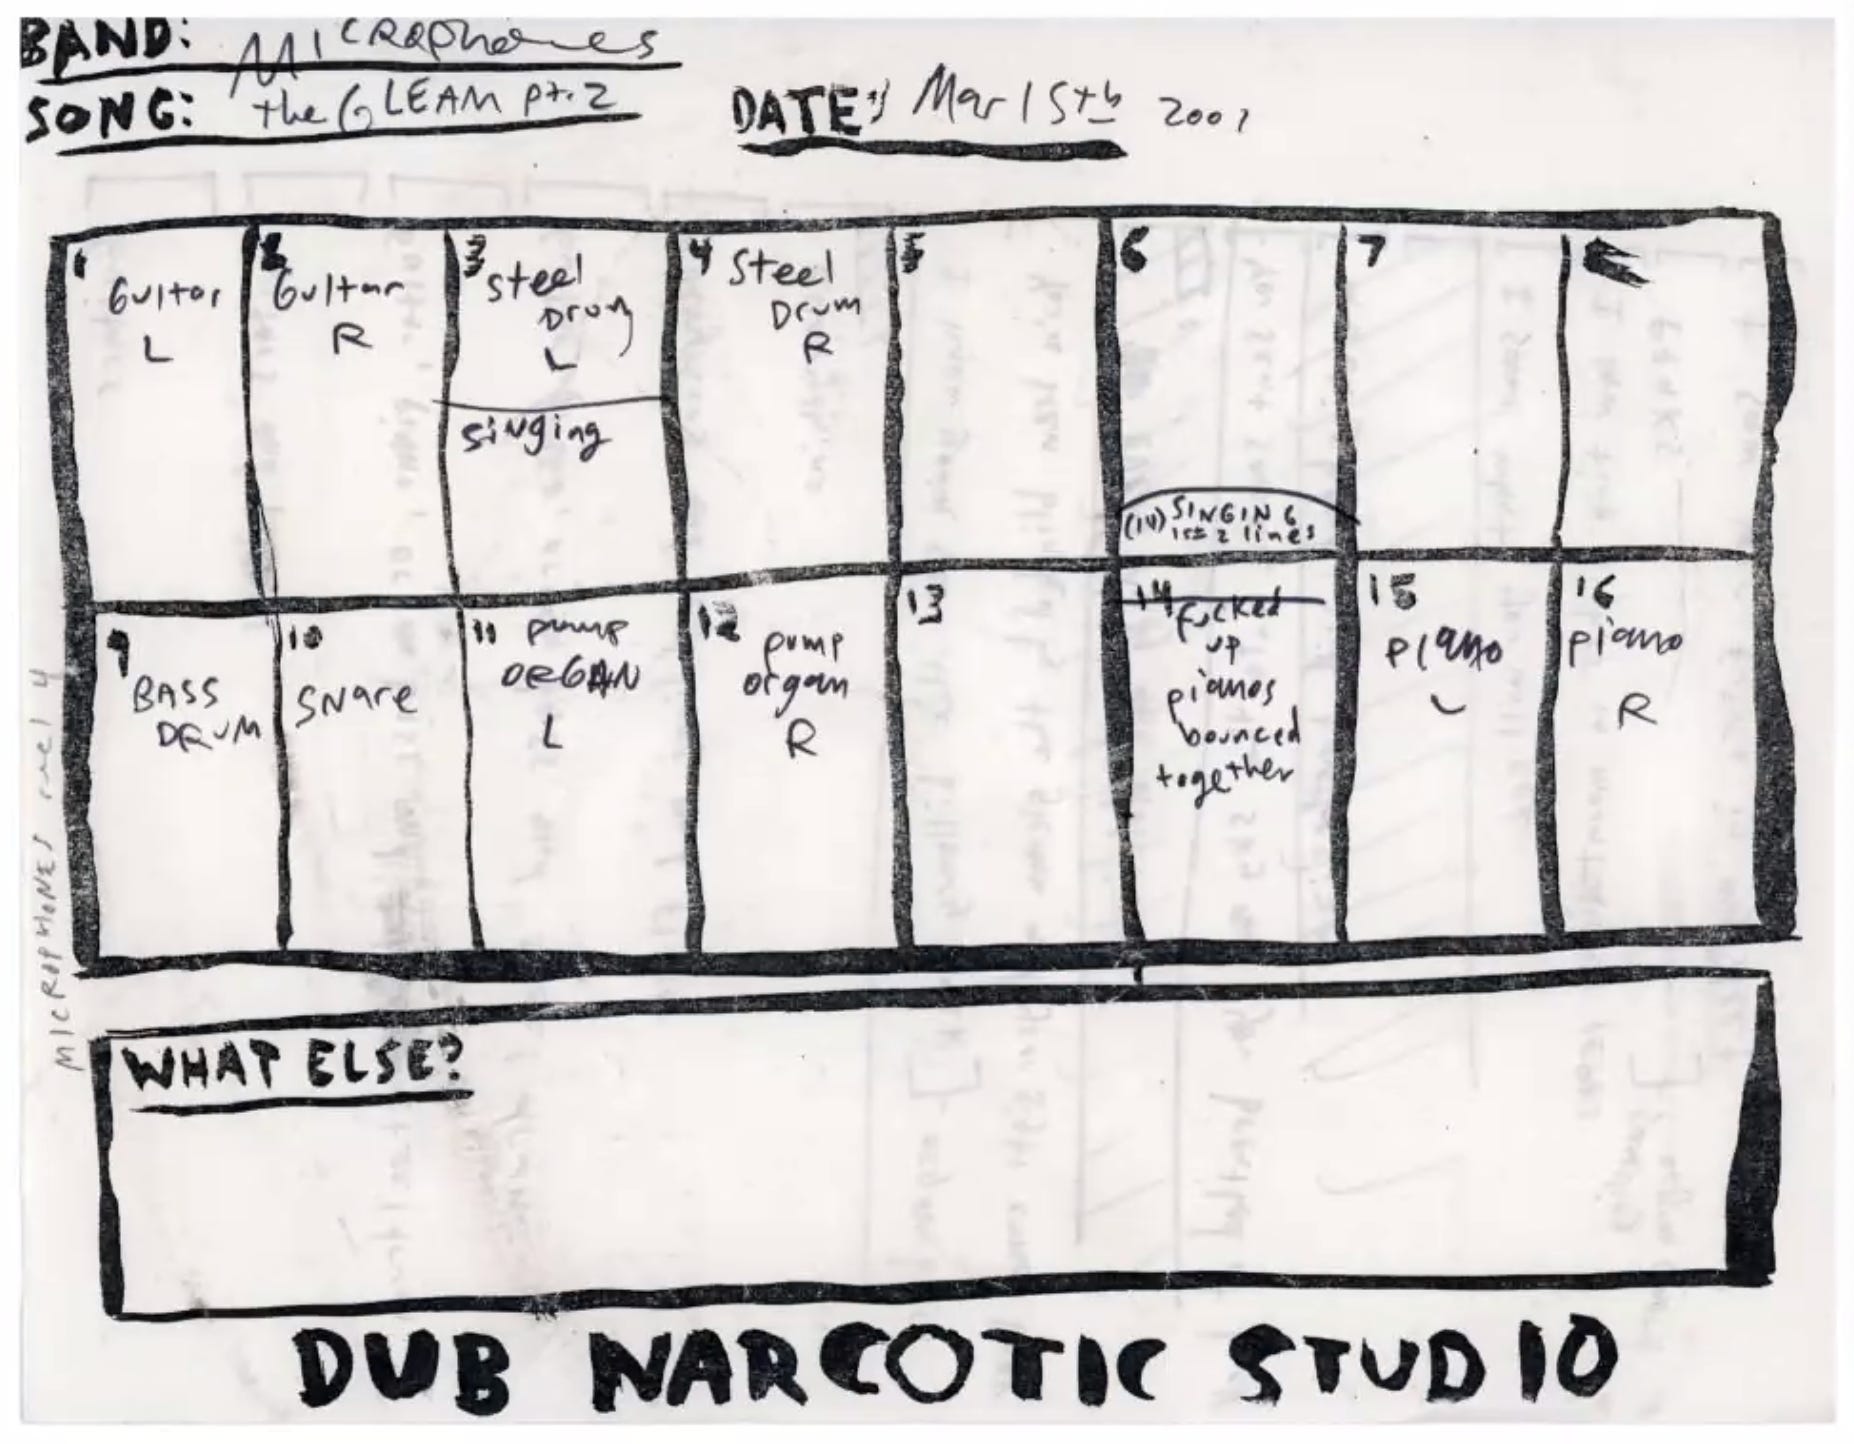 BAND: MICROPhones
SONG: the GLEAM pt. 2
DATE: Mar 15th 2001
1
Guitar
L
2
Guitar
R
3
Steel
Drum
L
singing
4
Steel
Drum
R
5
6
(14) SINGING
1st 2 lines
7
9
BASS
DRUM
10
Snare
11
pump
ORGAN
L
12
pump
organ
R
13
14
fucked
up
pianos
bounced
together
15
piano
L
16
piano
R
MICROPHONES reel 4
WHAT ELSE?
DUB NARCOTIC STUDIO